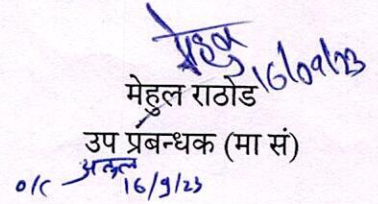 मेहुल 16/09/23
मेहुल राठोड
उप प्रबन्धक (मा सं)
o/c
16/9/23